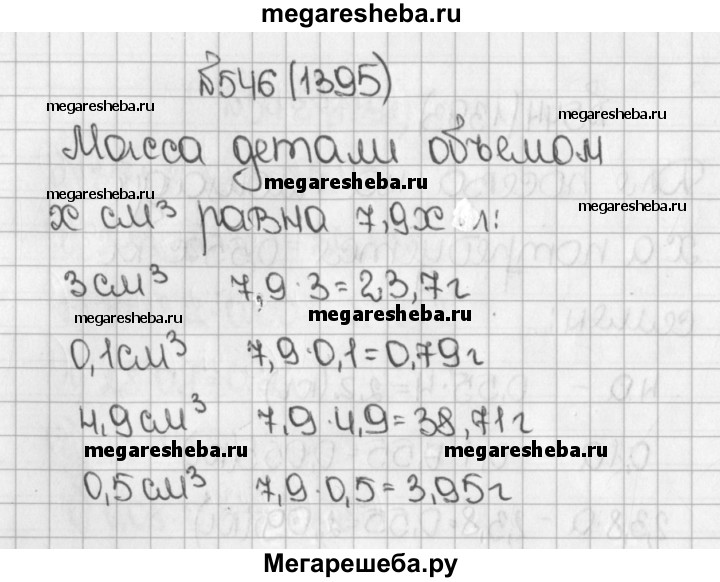 megaresheba.ru
№546 (1395)
megaresheba.ru megaresheba.ru
Масса детали объемом
megaresheba.ru
x см³ равна 7,9x г:
megaresheba.ru
3 см³ 7,9·3=23,7г
megaresheba.ru megaresheba.ru
0,1см³ 7,9·0,1=0,79г
4,9см³ 7,9·4,9=38,71г
megaresheba.ru megaresheba.ru
0,5см³ 7,9·0,5=3,95г
Мегарешеба.ру